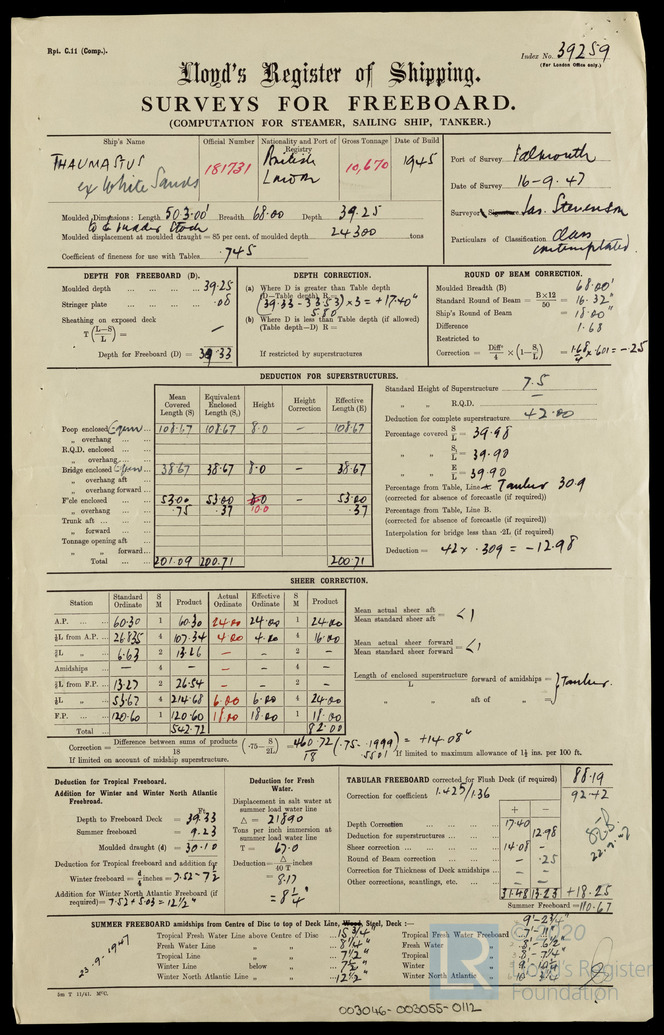 Rpt. C.11 (Comp.).
Index No. 39259
(For London Office only.)
Lloyd's Register of Shipping.
SURVEYS FOR FREEBOARD.
(COMPUTATION FOR STEAMER, SAILING SHIP, TANKER.)
Ship's Name Official Number Nationality and Port of Registry Gross Tonnage Date of Build
THAUMASTUS
ex White Sands
181731 British London 10,670 1945
Port of Survey Falmouth
Date of Survey 16-9-47
Surveyor's Signature Jas. Stevenson
Particulars of Classification Class contemplated
Moulded Dimensions: Length 503.00' Breadth 68.00 Depth 39.25
Moulded displacement at moulded draught = 85 per cent. of moulded depth 24300 tons
Coefficient of fineness for use with Tables .745
DEPTH FOR FREEBOARD (D).
Moulded depth ... 39.25
Stringer plate ... .08
Sheathing on exposed deck
T (L-S/L) = –
Depth for Freeboard (D) = 39.33
DEPTH CORRECTION.
(a) Where D is greater than Table depth
(D—Table depth) R =
(39.33 - 33.53) × 3 = +17.40"
5.80
(b) Where D is less than Table depth (if allowed)
(Table depth—D) R =
If restricted by superstructures
ROUND OF BEAM CORRECTION.
Moulded Breadth (B) 68.00'
Standard Round of Beam = B×12/50 = 16.32"
Ship's Round of Beam = 18.00"
Difference 1.68
Restricted to
Correction = Diffce/4 × (1 – S₁/L) = 1.68/4 × .601 = -.25
DEDUCTION FOR SUPERSTRUCTURES.
Mean Covered Length (S) Equivalent Enclosed Length (S₁) Height Height Correction Effective Length (E)
Poop enclosed Open ... 108.67 108.67 8.0 – 108.67
„ overhang ...
R.Q.D. enclosed ...
„ overhang ...
Bridge enclosed Open ... 38.67 38.67 8.0 – 38.67
„ overhang aft ...
„ overhang forward ...
F'cle enclosed ... 53.00 53.00 – 53.00
„ overhang ... .75 .37 10.0 .37
Trunk aft ...
„ forward ...
Tonnage opening aft ...
„ „ forward ...
Total ... 201.09 200.71 200.71
Standard Height of Superstructure 7.5
„ „ R.Q.D. –
Deduction for complete superstructure 42.00
Percentage covered S/L = 39.98
„ „ S₁/L = 39.90
„ „ E/L = 39.90
Percentage from Table, Line A Tanker 30.9
(corrected for absence of forecastle (if required))
Percentage from Table, Line B.
(corrected for absence of forecastle (if required))
Interpolation for bridge less than ·2L (if required)
Deduction = 42 × .309 = -12.98
SHEER CORRECTION.
Station Standard Ordinate S M Product Actual Ordinate Effective Ordinate S M Product
A.P. ... 60.30 1 60.30 24.00 24.00 1 24.00
⅙L from A.P. ... 26.835 4 107.34 4.00 4.00 4 16.00
⅓L „ ... 6.63 2 13.26 – – 2 –
Amidships ... – 4 – – – 4 –
⅓L from F.P. ... 13.27 2 26.54 – – 2 –
⅙L „ ... 53.67 4 214.68 6.00 6.00 4 24.00
F.P. ... 120.60 1 120.60 18.00 18.00 1 18.00
Total ... 542.72 82.00
Mean actual sheer aft / Mean standard sheer aft = <1
Mean actual sheer forward / Mean standard sheer forward = <1
Length of enclosed superstructure / L forward of amidships =
„ „ aft of „ = } Tanker.
Correction = Difference between sums of products/18 (·75– S/2L) = 460.72/18 (.75-.1999) = +14.08"
.5501
If limited on account of midship superstructure.
If limited to maximum allowance of 1½ ins. per 100 ft.
Deduction for Tropical Freeboard.
Addition for Winter and Winter North Atlantic Freeboard.
Ft.
Depth to Freeboard Deck = 39.33
Summer freeboard = 9.23
Moulded draught (d) = 30.10
Deduction for Tropical freeboard and addition for
Winter freeboard = d/4 inches = 7.52 - 7½
Addition for Winter North Atlantic Freeboard (if required) = 7.52 + 5.03 = 12½"
Deduction for Fresh Water.
Displacement in salt water at summer load water line
Δ = 21890
Tons per inch immersion at summer load water line
T = 67.0
Deduction = Δ/40 T inches
= 8.17
= 8¼"
TABULAR FREEBOARD corrected for Flush Deck (if required) 88.19
Correction for coefficient 1.425/1.36 92.42
+ –
Depth Correction ... 17.40
Deduction for superstructures ... 12.98
Sheer correction ... 14.08 –
Round of Beam correction ... – .25
Correction for Thickness of Deck amidships ... – –
Other corrections, scantlings, etc. ... – –
31.48 13.23 +18.25
Summer Freeboard = 110.67
SUMMER FREEBOARD amidships from Centre of Disc to top of Deck Line, Wood, Steel, Deck :— 9'-2¾"
Tropical Fresh Water Line above Centre of Disc ... 15¾" Tropical Fresh Water Freeboard 7'-11"
Fresh Water Line „ „ ... 8¼" Fresh Water „ 8'-6½"
Tropical Line „ „ ... 7½" Tropical „ 8'-7¼"
Winter Line below „ ... 7½" Winter „
Winter North Atlantic Line „ „ ... 12½" Winter North Atlantic „
23.9.1947
5m T 11/41. MᶜC.
003046-003055-0112
LR
©2020
Lloyd's Register
Foundation